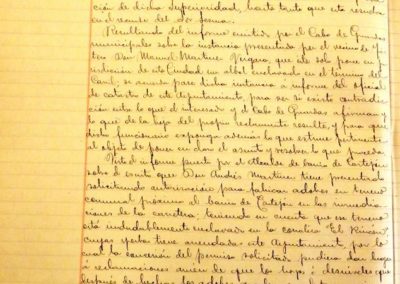 ción de dicha Superioridad, hasta tanto que esta resuelva
en el recurso del Sor
Resultando del informe emitido por el Cabo de Guardas
municipales sobre la instancia presentada por el vecino de
Don Manuel Martinez Vergara, que éste solo pone en
indicación de esta Ciudad un albal enclavado en el termino del
Canil; se acuerda pase dicha instancia a informe del oficial
de catastro de este Ayuntamiento para ver si existe contradic-
ción entre lo que el interesado y el Cabo de Guardas afirman y
lo que de la hoja del propio realmente resulte, y para que
dicho funcionario exponga además lo que estime pertinente
al objeto de poner en claro el asunto y resolver lo que proceda.
Visto el informe puesto por el Alcalde de barrio de
sobre el escrito que Don Andrés Martinez tiene presentado
solicitando autorización para fabricar adobes en terreno
comunal próximo al barrio de en las inmedia-
ciones de la carretera, teniendo en cuenta que ese terreno
está indudablemente enclavado en la corraliza "El Rincón",
cuyas yerbas tiene arrendadas este Ayuntamiento, por lo
cual la concesión del permiso solicitado pudiera dar lugar
á reclamaciones amen de que los hoyos ó desniveles que
después de hechos los adobes